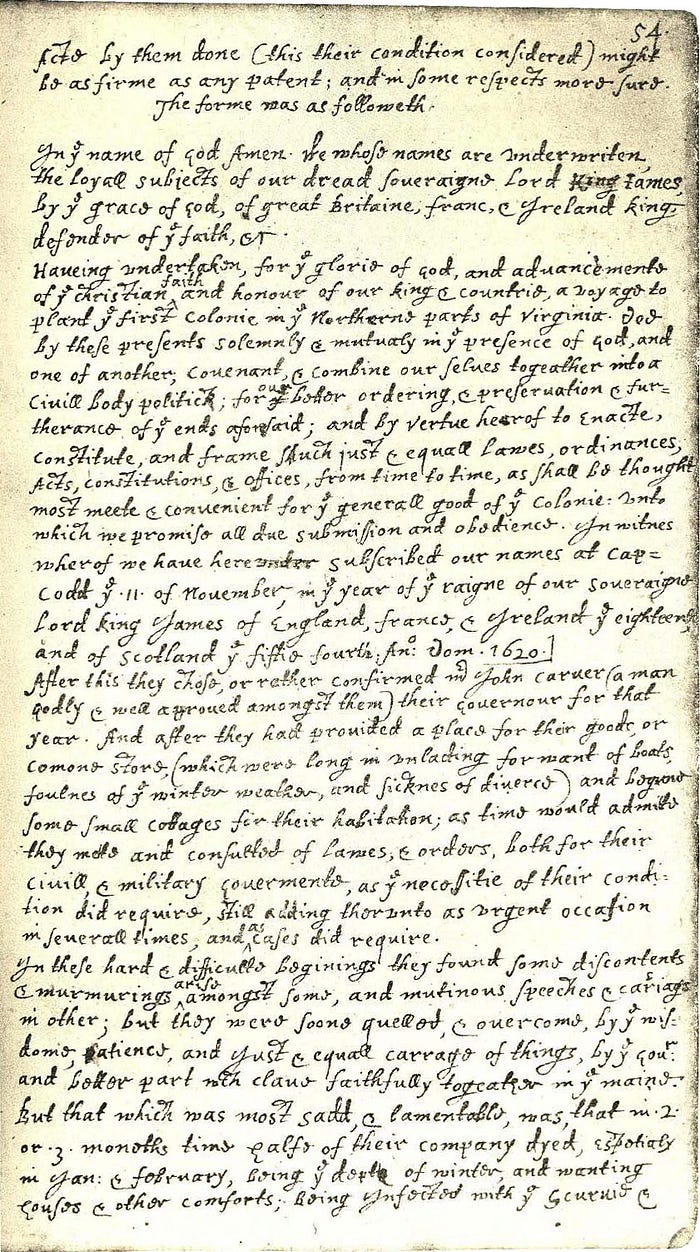 54.
Acts by them done (this their condition considered) might
be as firme as any patent; and in some respects more sure.
The forme was as followeth.
In yͤ name of god Amen. We whose names are underwriten,
the loyall subjects of our dread soveraigne Lord King James,
by yͤ grace of god, of great Britaine, franc, & Ireland king,
defender of yͤ faith, &c.
Haveing undertaken, for yͤ glorie of god, and advancemente
of yͤ christian faith and honour of our king & countrie, a voyage to
plant yͤ first colonie in yͤ Northerne parts of Virginia. Doe
by these presents solemnly & mutualy in yͤ presence of god, and
one of another, covenant, & combine our selves togeather into a
civill body politick; for our better ordering, & preservation & fur=
therance of yͤ ends aforesaid; and by vertue hearof to enacte,
constitute, and frame shuch just & equall lawes, ordinances,
Acts, constitutions, & offices, from time to time, as shall be thought
most meete & convenient for yͤ generall good of yͤ colonie: unto
which we promise all due submission and obedience. In witnes
wherof we have hereunder subscribed our names at Cap=
Codd yͤ .11. of November, in yͤ year of yͤ raigne of our soveraigne
Lord king James of England, france, & Ireland yͤ eighteenth
and of Scotland yͤ fiftie fourth. Anͦ: Dom. 1620.]
After this they chose, or rather confirmed mͬ John Carver (a man
godly & well aproved amongst them) their governour for that
year. And after they had provided a place for their goods, or
comone store, (which were long in unlading for want of boats,
foulnes of yͤ winter weather, and sicknes of diverce) and begune
some small cottages for their habitation; as time would admitte
they mette and consulted of lawes, & orders, both for their
civill, & military govermente, as yͤ necessitie of their condi:
tion did require, still adding therunto as urgent occasion
in severall times, and as cases did require.
In these hard & difficulte beginings they found some discontents
& murmurings arise amongst some, and mutinous speeches & cariags
in other; but they were soone quelled, & overcome, by yͤ wis=
dome, patience, and just & equall carrage of things, by yͤ Govͬ:
and better part wch clave faithfully togeather in yͤ maine.
But that which was most sadd, & lamentable, was, that in .2.
or .3. moneths time halfe of their company dyed, espetialy
in Jan: & february, being yͤ depth of winter, and wanting
houses & other comforts; being Infected with yͤ Scurvie &